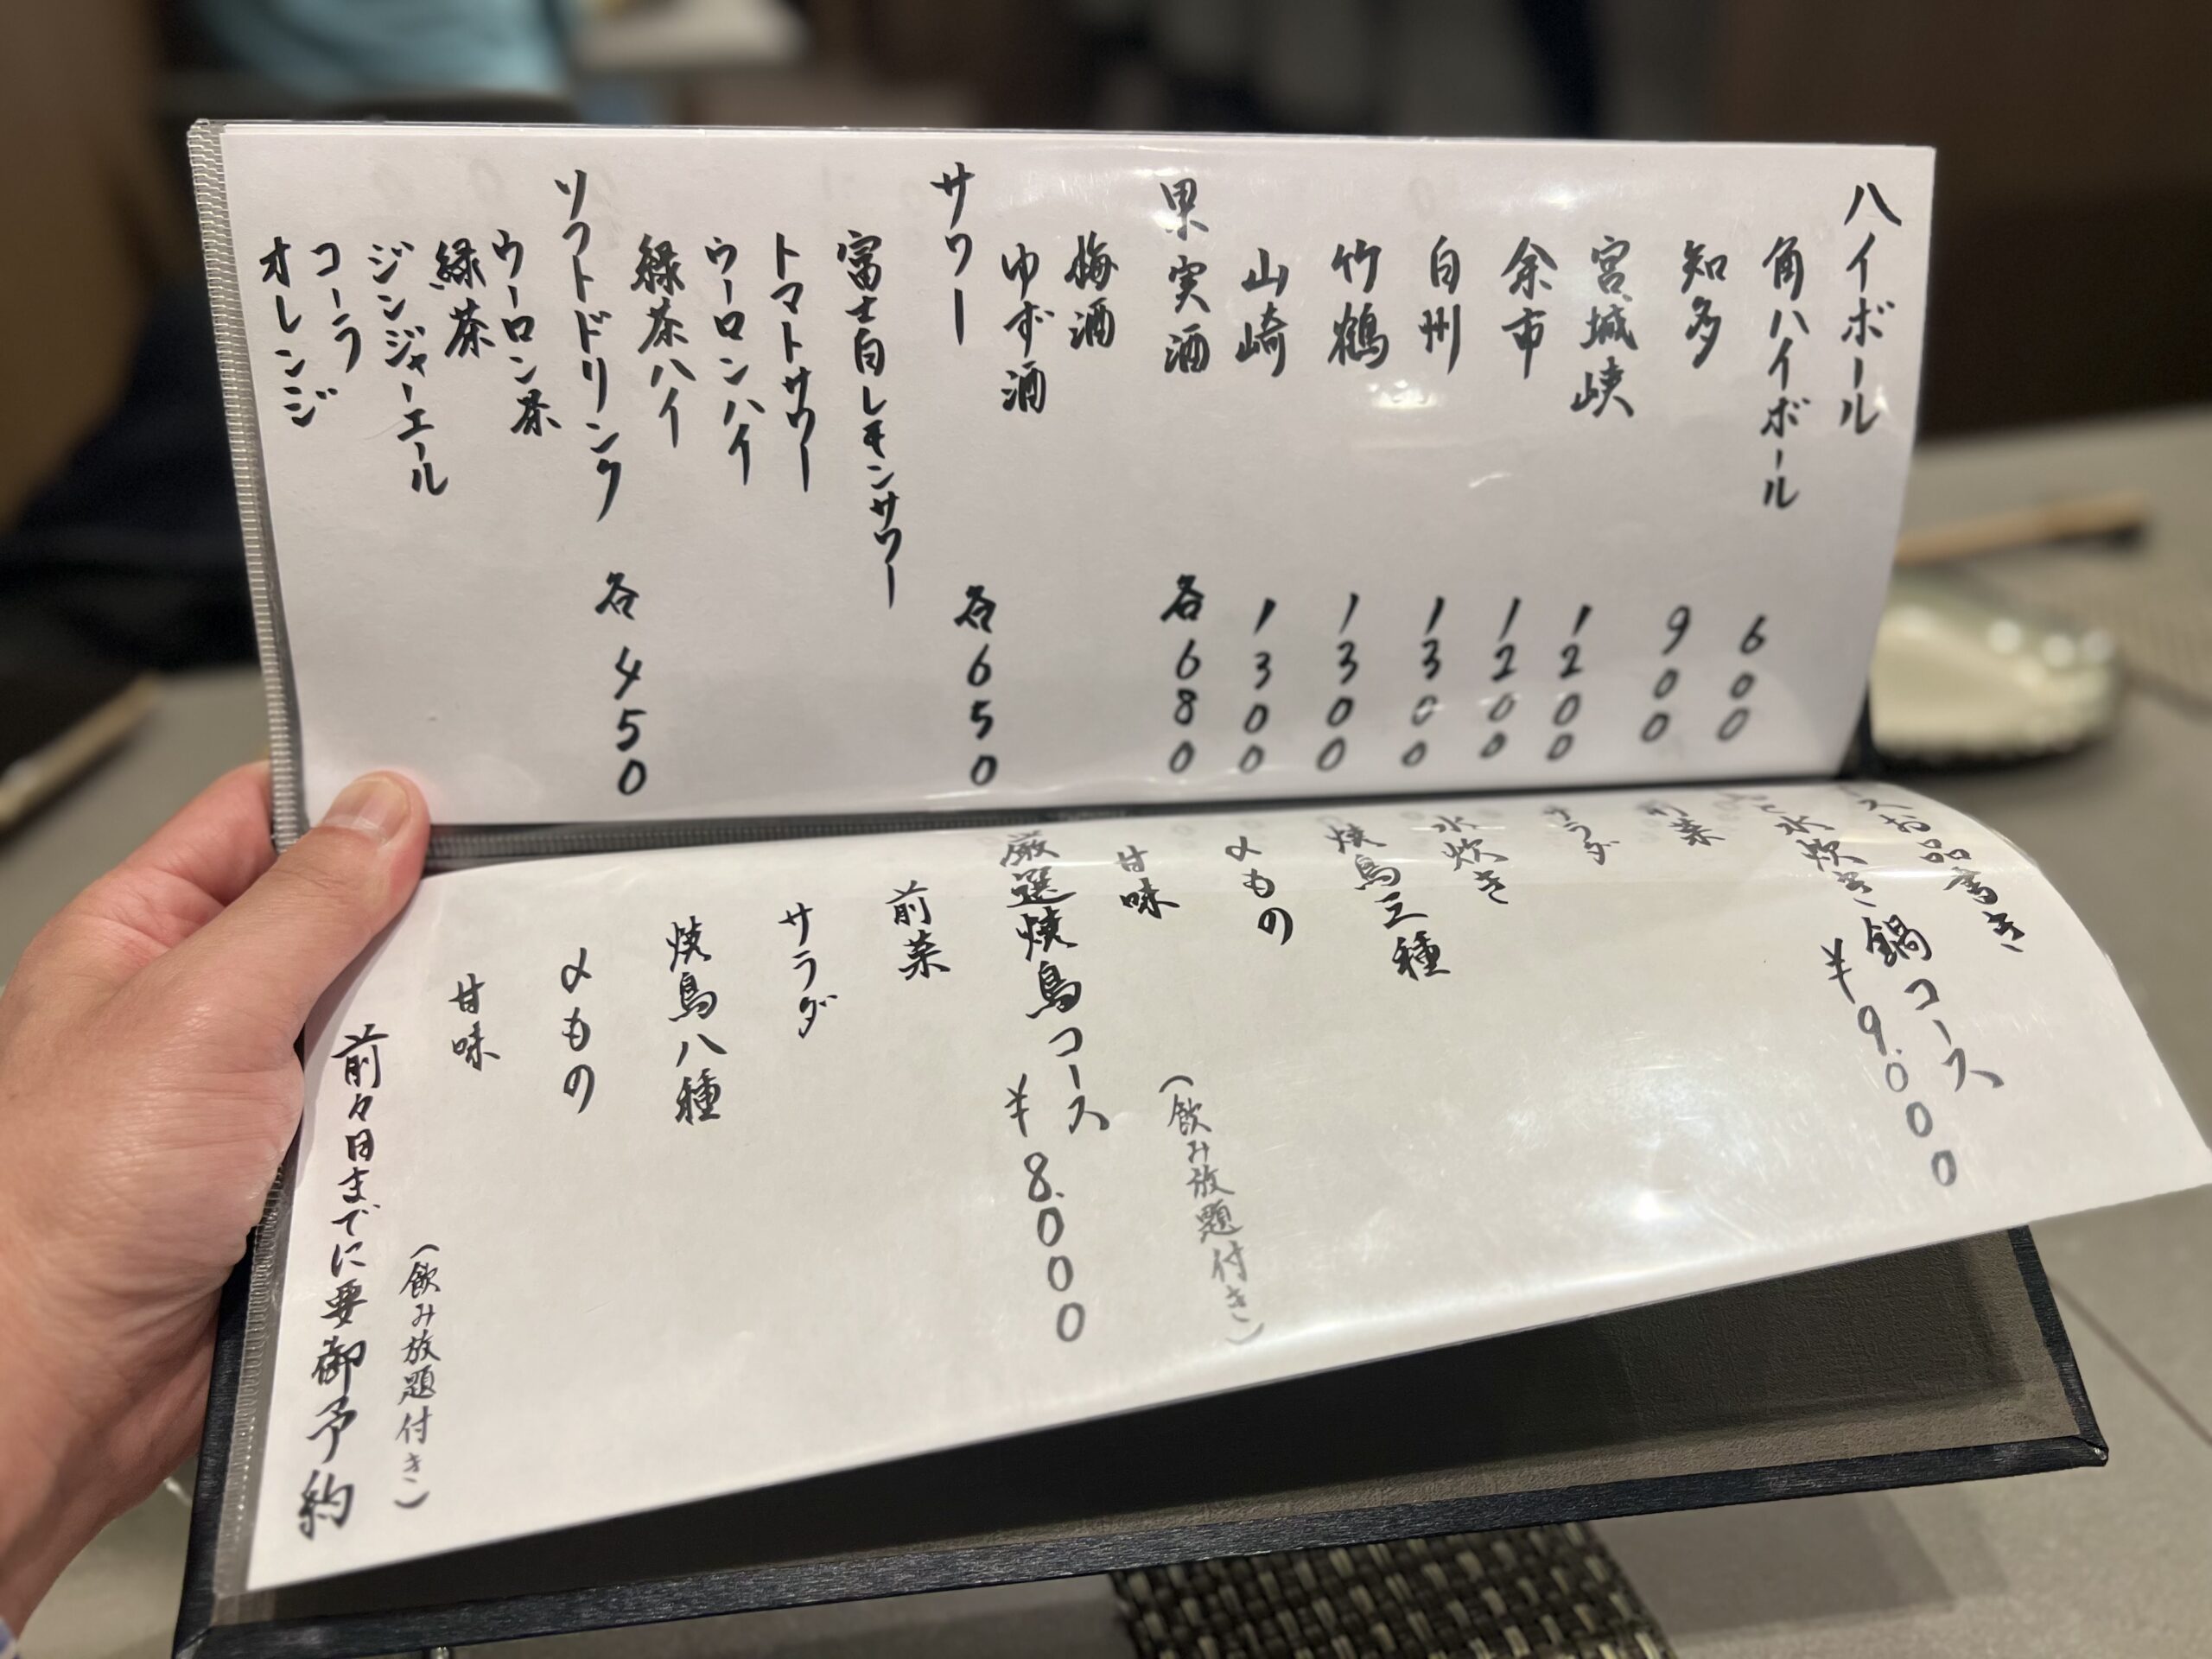 ハイボール
角ハイボール 600
知多 900
宮城峡 1200
余市 1200
白州 1300
竹鶴 1300
山崎 1300
果実酒 各680
梅酒
ゆず酒
サワー 各650
富士白レモンサワー
トマトサワー
ウーロンハイ
緑茶ハイ
ソフトドリンク 各450
ウーロン茶
緑茶
ジンジャーエール
コーラ
オレンジ
お品書き
水炊き鍋コース
¥9.000
前菜
サラダ
水炊き
焼鳥三種
〆もの
甘味
(飲み放題付き)
厳選焼鳥コース
¥8.000
前菜
サラダ
焼鳥八種
〆もの
甘味
(飲み放題付き)
前々日までに要御予約